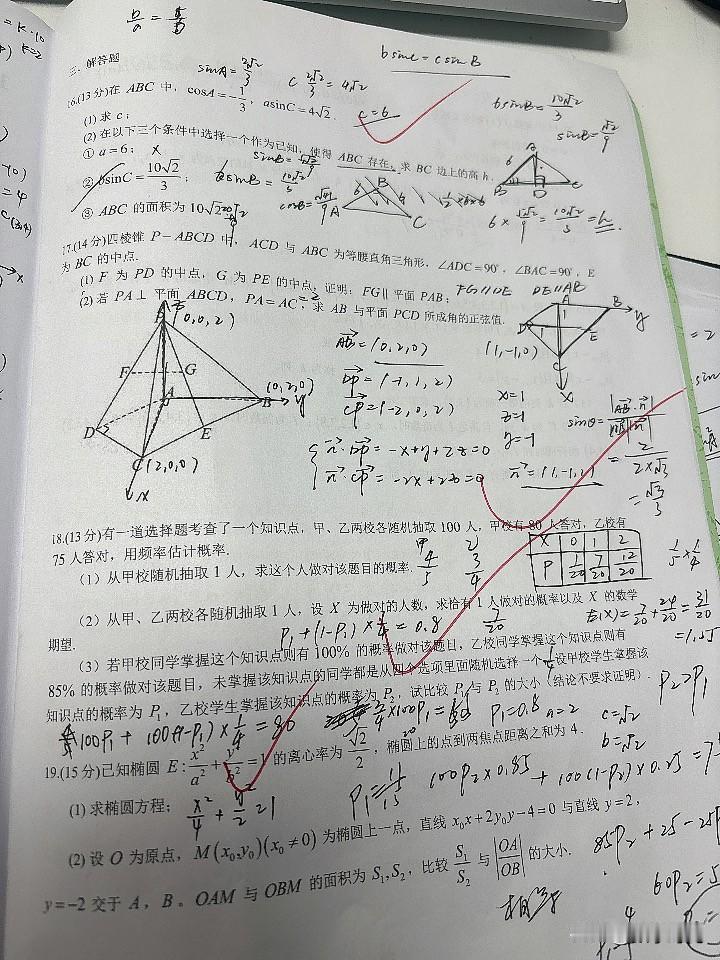 b/a = 
三. 解答题
sinA = 2√2/3
c 2√2/3 = 4√2
bsinC = csinB
16.(13分)在 ABC 中, cosA=-1/3, asinC=4√2.
c=6
bsinB = 10√2/3
(1) 求 c;
(2) 在以下三个条件中选择一个作为已知, 使得 ABC 存在, 求 BC 边上的高 h.
① a=6; ×
② bsinC=10√2/3;
bsinB = 10√2/3
③ ABC 的面积为 10√2
17.(14分)四棱锥 P-ABCD 中, ACD 与 ABC 为等腰直角三角形, ∠ADC=90°, ∠BAC=90°, E
为 BC 的中点.
(1) F 为 PD 的中点, G 为 PE 的中点, 证明: FG∥平面 PAB;
FG∥DE DE∥AB
(2) 若 PA⊥平面 ABCD, PA=AC=2, 求 AB 与平面 PCD 所成角的正弦值.
(0,0,2)
F G
A
(0,2,0)
B y
D E
C(2,0,0)
x
A B y
D E
(1,-1,0)
C
x
AB=(0,2,0)
DP=(-1,1,2)
CP=(-2,0,2)
n·DP=-x+y+2z=0
n·CP=-2x+2z=0
x=1
z=1
y=-1
n=(1,-1,1)
sinθ=|AB·n|/|AB||n|
=2/2×√3
=√3/3
18.(13分)有一道选择题考查了一个知识点, 甲、乙两校各随机抽取 100 人, 甲校有 80 人答对, 乙校有
75 人答对, 用频率估计概率.
X 0 1 2
P 1/20 7/20 12/20
1/5×1/4
(1) 从甲校随机抽取 1 人, 求这个人做对该题目的概率.
甲 4/5
乙 3/4
(2) 从甲、乙两校各随机抽取 1 人, 设 X 为做对的人数, 求恰有 1 人做对的概率以及 X 的数学
期望.
P1+(1-P1)×1/4=0.8
7/20
E(X)=7/20+24/20=31/20
=1.55
(3) 若甲校同学掌握这个知识点则有 100% 的概率做对该题目, 乙校同学掌握这个知识点则有
85% 的概率做对该题目, 未掌握该知识点的同学都是从四个选项里面随机选择一个, 设甲校学生掌握该
知识点的概率为 P1, 乙校学生掌握该知识点的概率为 P2, 试比较 P1 与 P2 的大小 (结论不要求证明).
P2>P1
100P1+100(1-P1)×1/4=80
P1=0.8
a=2
c=√2
b=√2
19.(15分)已知椭圆 E: x²/a²+y²/b²=1 的离心率为 √2/2, 椭圆上的点到两焦点距离之和为 4.
(1) 求椭圆方程;
x²/4+y²/2=1
P1=11/15
100P2×0.85+100(1-P2)×0.25=7
(2) 设 O 为原点, M(x0,y0)(x0≠0) 为椭圆上一点, 直线 x0x+2y0y-4=0 与直线 y=2,
85P2+25-25P
y=-2 交于 A, B。OAM 与 OBM 的面积为 S1,S2, 比较 S1/S2 与 |OA|/|OB| 的大小.
60P2=5
相等